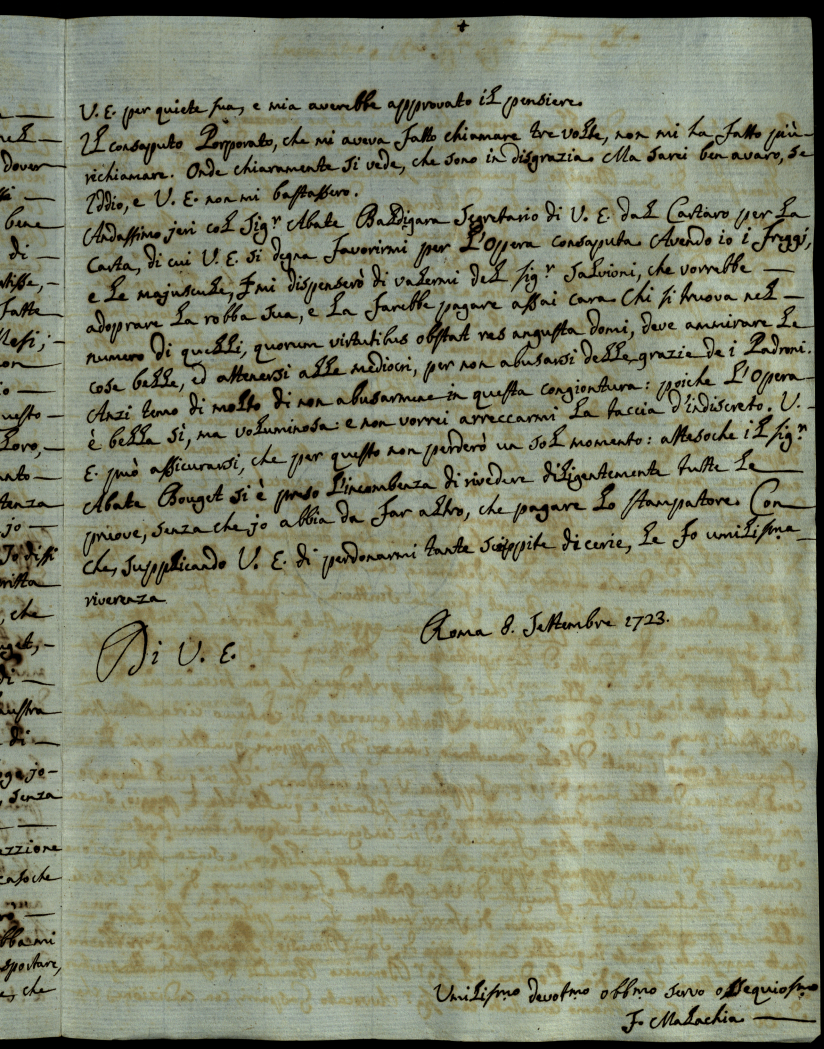 V. E. per quiete sua, e mia averebbe approvato il pensiere.
Il consaputo Porporato, che mi aveva fatto chiamare tre volte, non mi ha fatto più
richiamare. Onde chiaramente si vede, che sono in disgrazia. Ma sarei ben avaro, se
Iddio, e V. E. non mi bastassero.
Andassimo jeri col Sig.r Abate Baldigara Segretario di V. E. dal Cartaro per la
Carta, di cui V. E. si degna favorirmi per l'Opera consaputa. Avendo io i freggi,
e le majuscule, mi dispenserò di valermi del sig.r Salvioni, che vorrebbe —
adoprare la robba sua, e la farebbe pagare assai cara. Chi si truova nel —
numero di quelli, quorum virtutibus obstat res angusta domi, deve ammirare le
cose belle, ed attenersi alle mediocri, per non abusarsi delle grazie de i Padroni.
Anzi temo di molto di non abusarmene in questa congiontura: poiche l'Opera
è bella sì, ma voluminosa: e non vorrei arreccarmi la taccia d'indiscreto. V.
E. può assicurarsi, che per questo non perderò un sol momento: attesoche il sig.r
Abate Bouget si è preso l'incombenza di rivedere diligentemente tutte le
pruove, senza che jo abbia da far altro, che pagare lo stampatore. Con
che, supplicando V. E. di perdonarmi tante scippite dicerie, le fo umilisma
riverenza
Roma 8. Settembre 1723.
Di V. E.
Umilismo devotmo obbmo servo ossequiosmo
F. Malachia —
nel —
dover
bene
di —
fatte
non
questo —
loro,—
tenza
jo —
Jo dissi
, che
di —
di —
, senza
casoche
abbami
sportare,
che